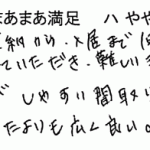 まあまあ満足　ハ やや
契約から、入居まで
ていただき、難しい
が しやすい間取り
たよりも広く良い